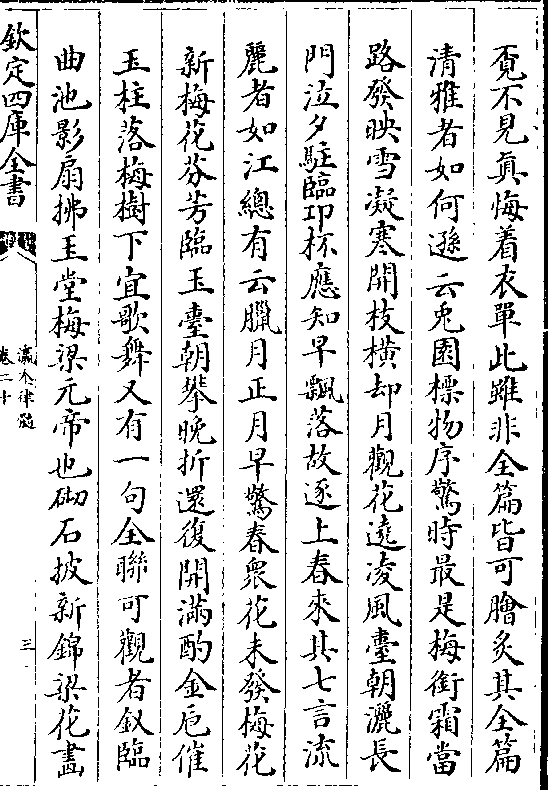 覔不見真悔着衣單此雖非全篇皆可膾炙其全篇
清雅者如何遜云兎園標物序驚時最是梅銜霜當
路發映雪凝寒開枝横却月觀花遶凌風臺朝灑長
門泣夕駐臨卭杯應知早飄落故逐上春來其七言流
麗者如江總有云臘月正月早驚春衆花未發梅花
新梅花芬芳臨玉臺朝攀晚折還復開滿酌金巵催
玉柱落梅樹下宜歌舞又有一句全聯可觀者釵臨
曲池影扇拂玉堂梅梁元帝也砌石披新錦梁花畫
欽定四庫全書
瀛奎律髓
卷二十
三